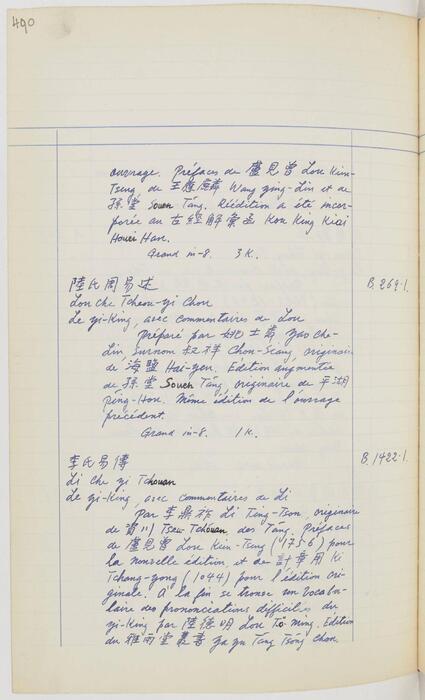 490
ouvrage. Préfaces de 盧見曾 Lou Kien-
Tseng, de 王應麟 Wang Ying-Lin et de
孫堂 Souen T'ang. Réédition a été incor-
porée au 古經解彙函 Kou King Kiai
Houei Han.
Grand in-8. 3 K.
陸氏周易述 B. 269-1.
Lou che Tcheou-yi Chou
Le yi-King, avec commentaires de Lou
Préparé par 姚士粦 Yao Che-
Lin, Surnom 叔祥 Chou-Siang, originaire
de 海鹽 Hai-yen. Edition augmentée
de 孫堂 Souen T'ang, originaire de 平湖
P'ing-Hou. Même édition de l'ouvrage
précédent.
Grand in-8. 1 K.
李氏易傳 B. 1422-1.
Li Che yi Tchouan
Le yi-King, avec commentaires de Li
Par 李鼎祚 Li Ting-Tsou, originaire
de 資川 Tseu Tchouan des T'ang. Préfaces
de 盧見曾 Lou Kien-Tseng (1756) pour
la nouvelle édition et de 計章用 Ki
Tchang-yong (1044) pour l'édition ori-
ginale. A la fin se trouve un vocabu-
laire des prononciations difficiles du
yi-King par 陸德明 Lou Tö-Ming. Edition
du 雅雨堂叢書 Ya yu T'ang Ts'ong chou.